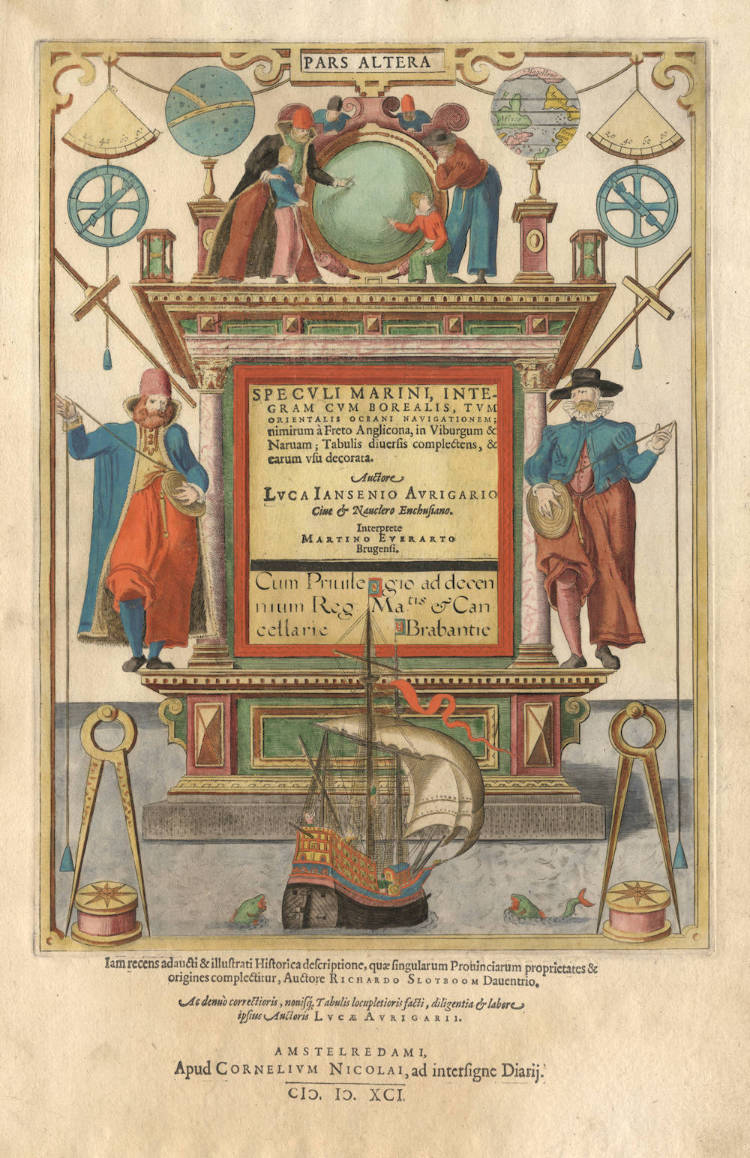 PARS ALTERA
SPECVLI MARINI, INTE-
GRAM CVM BOREALIS, TVM
ORIENTALIS OCEANI NAVIGATIONEM;
nimirum à Freto Anglicona, in Viburgum &
Naruam; Tabulis diuersis complectens, &
earum vsu decorata.
Auctore
LVCA IANSENIO AVRIGARIO
Ciue & Nauclero Enchusiano.
Interprete
MARTINO EVERARTO
Brugensi.
Cum Priuilegio ad decen
nium Reg Ma.tis & Can
cellarie Brabantie
Iam recens adaucti & illustrati Historica descriptione, quæ singularum Prouinciarum proprietates &
origines complectitur, Auctore RICHARDO SLOTBOOM Dauentrio.
Ac denuò correctioris, nouisq̃, Tabulis locupletioris facti, diligentia & labore
ipsius Auctoris LVCÆ AVRIGARII.
AMSTELREDAMI,
Apud CORNELIVM NICOLAI, ad intersigne Diarij.
CIↃ. IↃ. XCI.